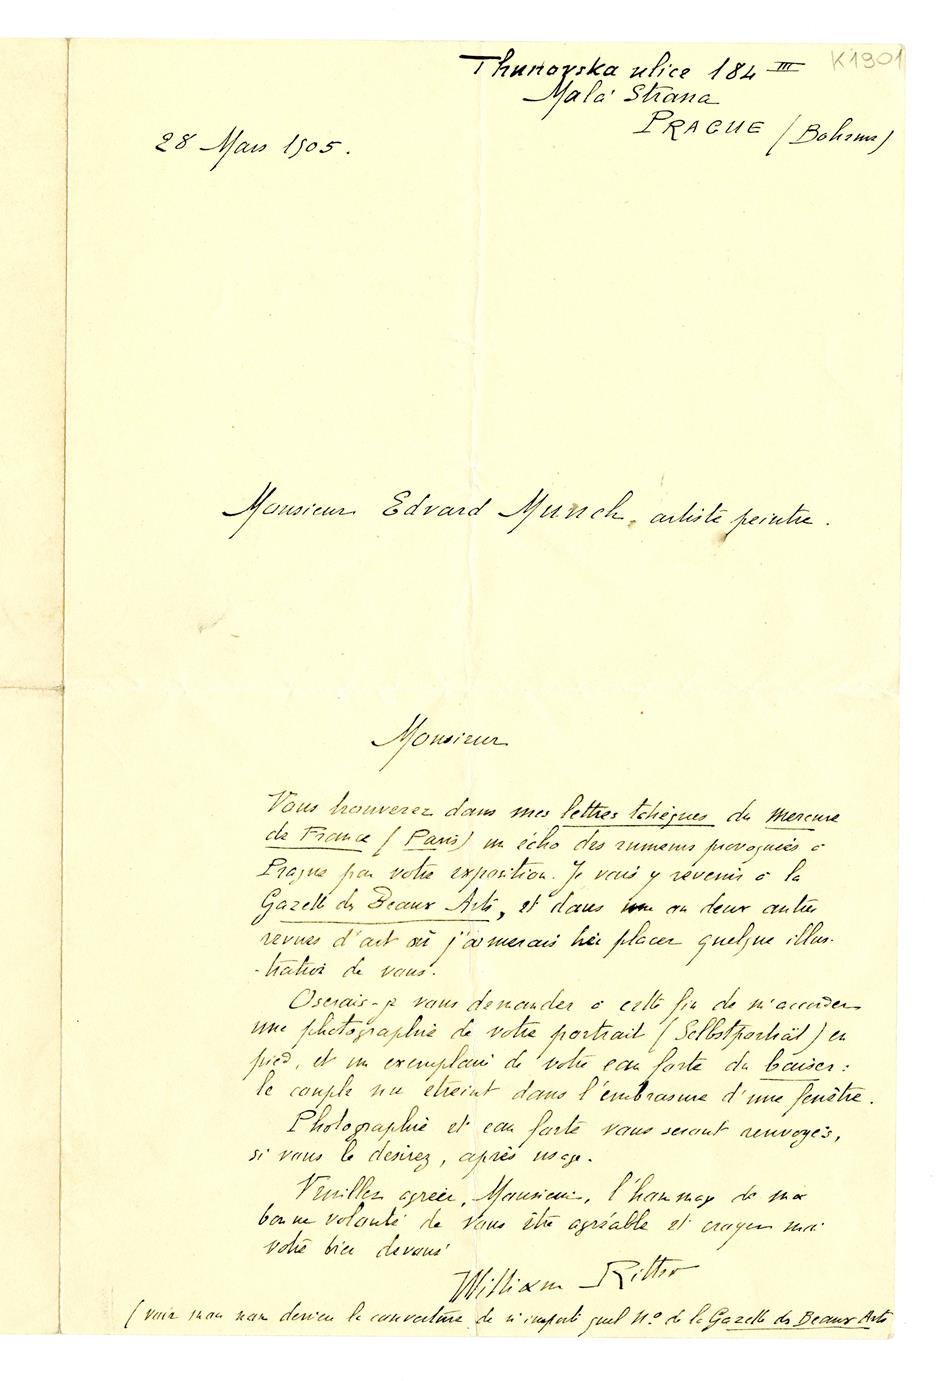 K1901
Thunovska ulice 184 III
Malá Strana
PRAGUE (Bohême)
28 Mars 1905.
Monsieur Edvard Munch, artiste peintre.
Monsieur
Vous trouverez dans mes lettres tchèques du Mercure
de France (Paris) un écho des rumeurs provoquées à
Prague par votre exposition. Je vais y revenir à la
Gazette des Beaux Arts, et dans une ou deux autres
revues d'art où j'aimerais placer quelque illus-
-tration de vous.
Oserais-je vous demander à cette fin de m'accorder
une photographie de votre portrait (Selbstporträt) en
pied, et un exemplaire de votre eau forte du baiser:
le couple nu étreint dans l'embrasure d'une fenêtre.
Photographie et eau forte vous seront renvoyés,
si vous le désirez, après usage.
Veuillez agréer, Monsieur, l'hommage de ma
bonne volonté de vous être agréable et croyez moi
votre bien dévoué
William Ritter
(voir mon nom derrière la couverture de n'importe quel No de la Gazette des Beaux Arts